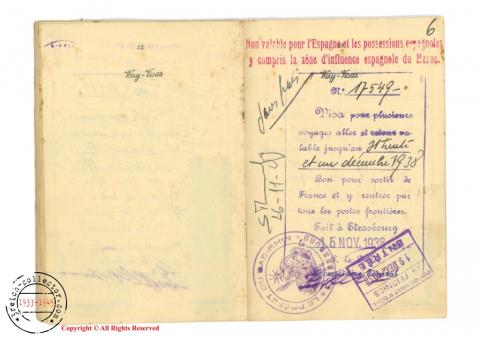 22
Way-Visas
6
Non valable pour l'Espagne et les possessions espagnoles
y compris la zône d'influence espagnole du Maroc.
Way-Visas
N° 17549-
Sans frais
Visa pour plusieurs
voyages aller et retour va-
lable jusqu'au 31 trente
et un décembre 1938
Bon pour sortir de
France et y rentrer par
tous les postes frontières.
Fait à Strasbourg
le 15 NOV. 1938
26-11-
LE PRÉFET DU BAS-RHIN
ENTRÉE
freico-collector.com
1933-1945
Copyright © All Rights Reserved